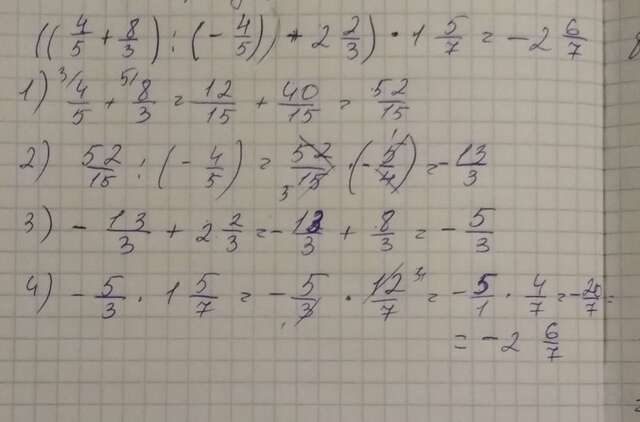 ((4/5 + 8/3) : (- 4/5)) + 2 2/3) · 1 5/7 = - 2 6/7
1) 3/ 4/5 + 5/ 8/3 = 12/15 + 40/15 = 52/15
2) 52/15 : (- 4/5) = 52/15 3 · (- 5/4 1) = - 13/3
3) - 13/3 + 2 2/3 = - 13/3 + 8/3 = - 5/3
4) - 5/3 · 1 5/7 = - 5/3 1 · 12/7 = - 5/1 · 4/7 = - 20/7 =
= - 2 6/7